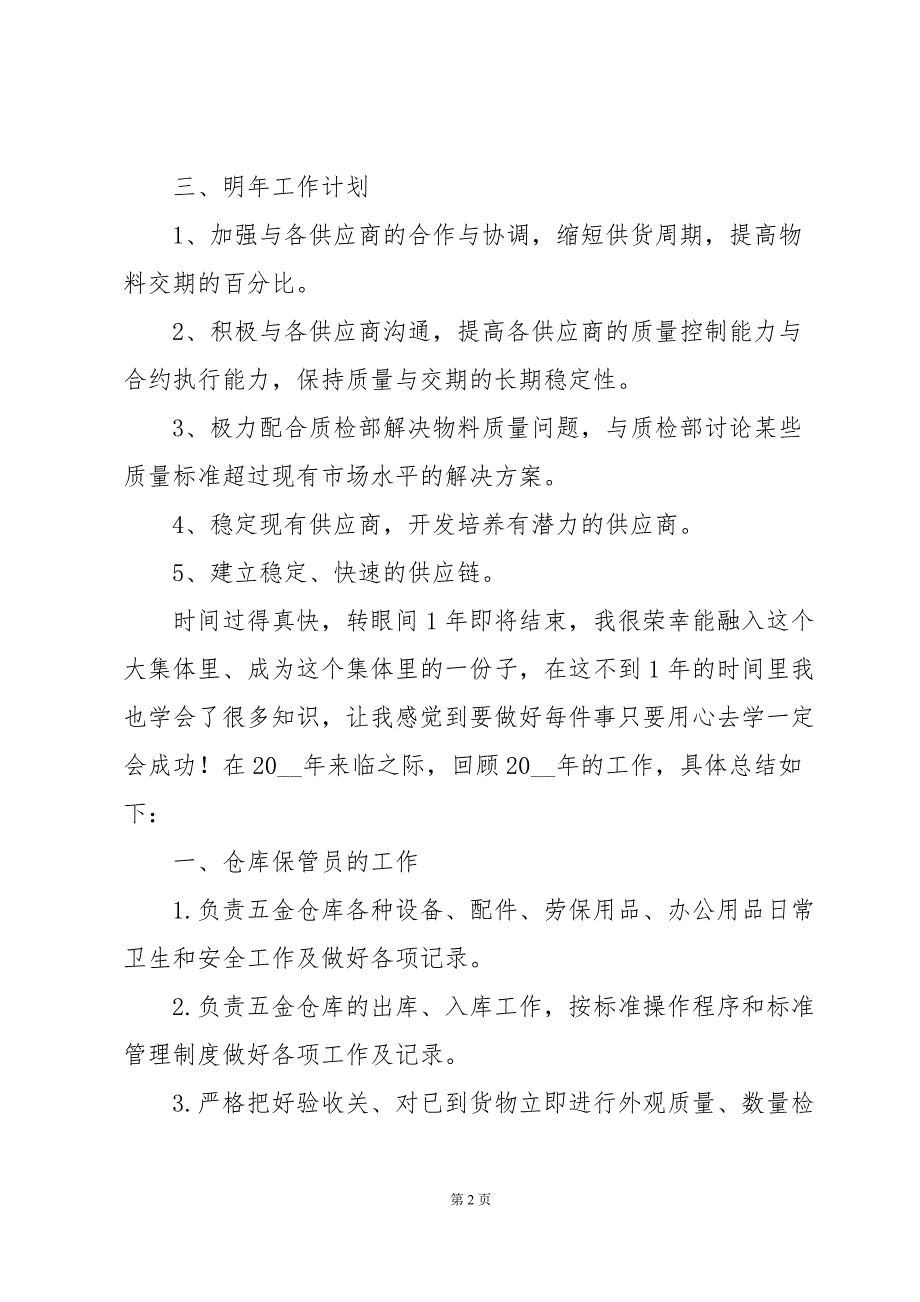 三、明年工作计划
1、加强与各供应商的合作与协调，缩短供货周期，提高物
料交期的百分比。
2、积极与各供应商沟通，提高各供应商的质量控制能力与
合约执行能力，保持质量与交期的长期稳定性。
3、极力配合质检部解决物料质量问题，与质检部讨论某些
质量标准超过现有市场水平的解决方案。
4、稳定现有供应商，开发培养有潜力的供应商。
5、建立稳定、快速的供应链。
时间过得真快，转眼间1年即将结束，我很荣幸能融入这个
大集体里、成为这个集体里的一份子，在这不到1年的时间里我
也学会了很多知识，让我感觉到要做好每件事只要用心去学一定
会成功！在20__年来临之际，回顾20__年的工作，具体总结如
下：
一、仓库保管员的工作
1.负责五金仓库各种设备、配件、劳保用品、办公用品日常
卫生和安全工作及做好各项记录。
2.负责五金仓库的出库、入库工作，按标准操作程序和标准
管理制度做好各项工作及记录。
3.严格把好验收关、对已到货物立即进行外观质量、数量检
第 2 页